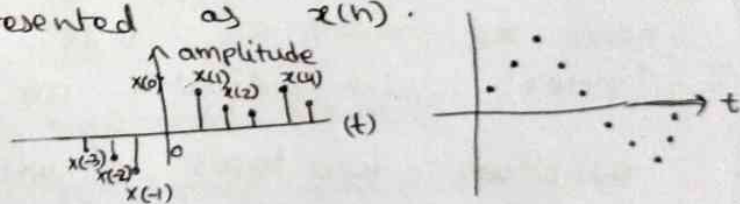 resented as x(n).
amplitude
x(0) x(1) x(2) x(4)
(t) t
0
x(-3) x(-2) x(-1)